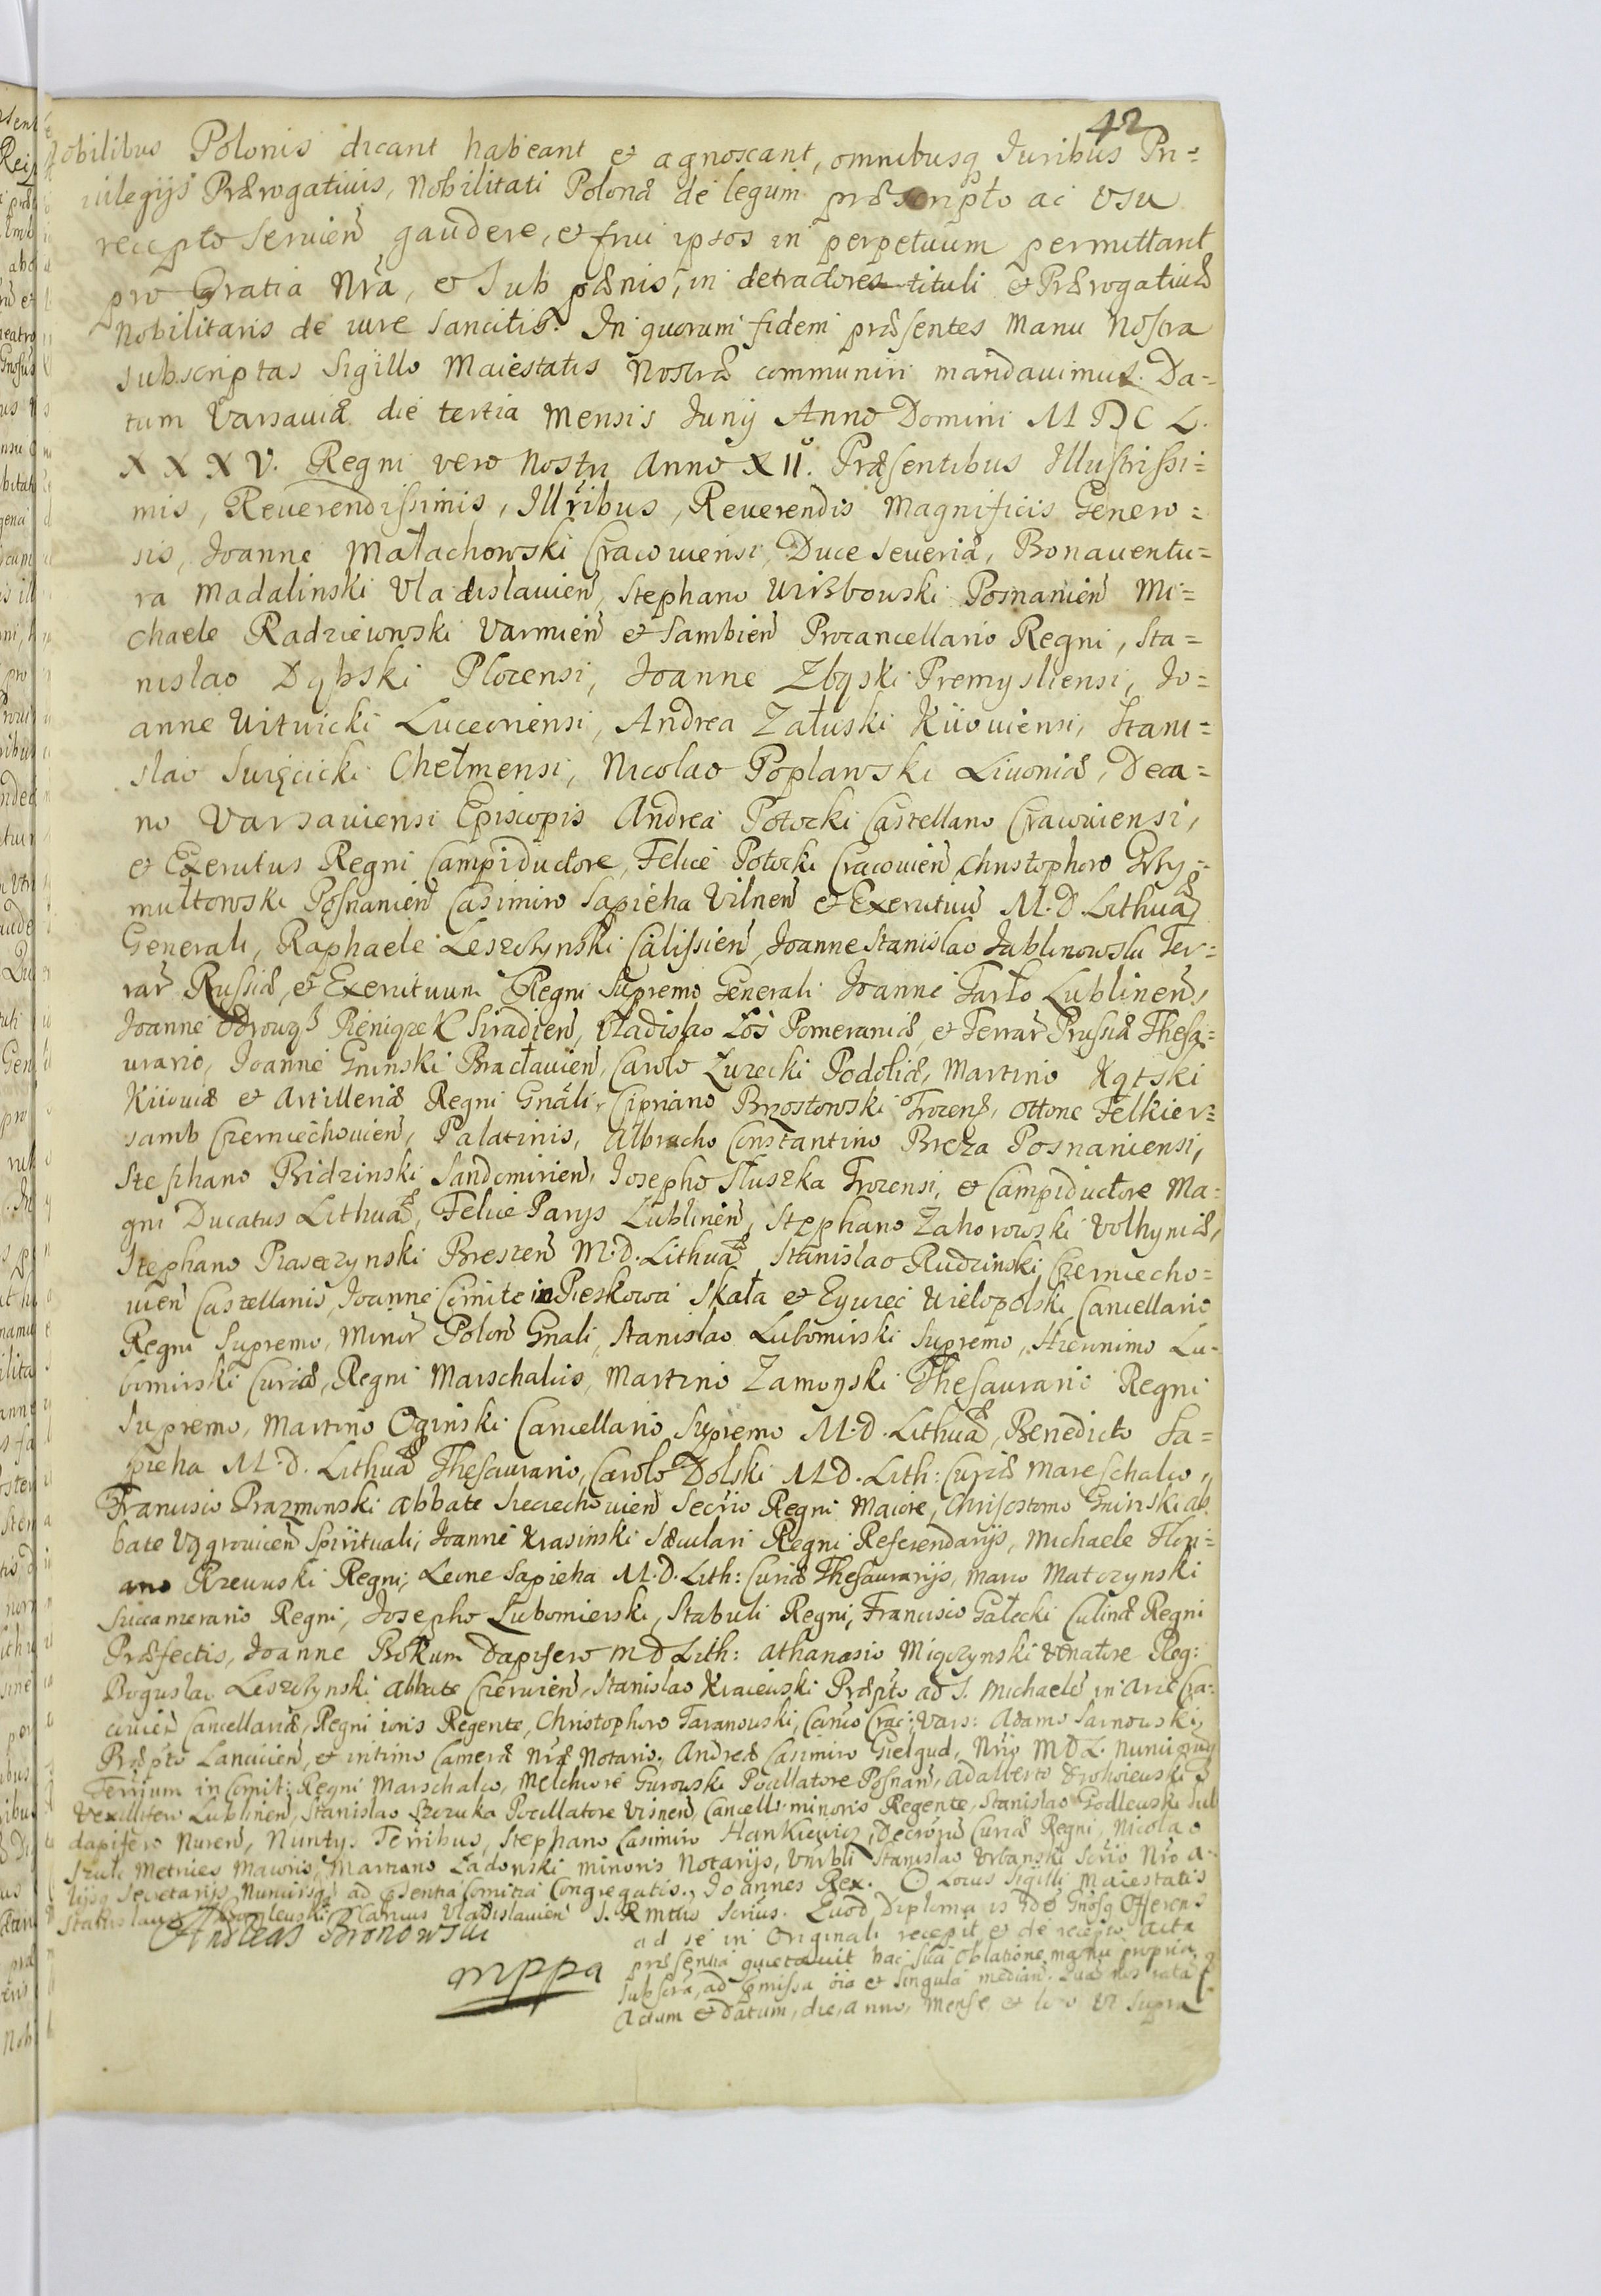 42
obilibus Polonis dicant habeant et agnoscant, omnibusq Iuribus Pri=
uilegijs Prærogatiuis, Nobilitati Polonæ de legum præscripto ac vsu
recepto seruien gaudere, et frui ipsos in perpetuum permittant
pro Gratia Nra, et sub pænis, in detractores tituli et Prærogatiuæ
Nobilitaris de iure sancitis. In quorum fidem præsentes Manu Nostra
subscriptas Sigillo Maiestatis Nostræ communiri mandauimus. Da=
tum Varsauiæ die tertia Mensis Iunij Anno Domini M DC L.
XXXV. Regni vero Nostri Anno XII. Præsentibus Illustrissi=
mis, Reuerendissimis, Illribus, Reuerendis Magnificis Genero=
sis, Joanne Małachowski Cracouiensi, Duce Seueriæ, Bonauentu=
ra Madalinski Vladislauien, Stephano Wirzbowski Posnanien Mi=
chaele Radzieiowski Varmien et Sambien Procancellario Regni, Sta=
nislao Dąbski Plocensi, Joanne Zbąski Premysliensi, Jo=
anne Witwicki Luceoriensi, Andrea Załuski Kiiouiensi, Stani=
slao Swięcicki Chełmensi, Nicolao Poplawski Liuoniæ, Deca=
no Varsauiensi Episcopis Andrea Potocki Castellano Cracouiensi,
et Exercitus Regni Campiductore, Felice Potocki Cracouien Christophoro Grzy=
multowski Posnanien Casimiro Sapieha Vilnen et Exercituu M.D. Lithuæ
Generali, Raphaele Leszczynski Calissien, Joanne Stanislao Jablonowski Ter=
rar Russiæ, et Exercituum Regni Supremo Generali Joanne Tarło Lublinen,
Joanne Odrowąż Pieniązek Siradien, Vladislao Łoś Pomeraniæ, et Terrar Prussiæ Thesa=
urario, Joanne Gninski Bracłauien, Carolo Łuzecki Podoliæ, Martino Kątski
Kiiouiæ et Artilleriæ Regni Gnali, Cipriano Brzostowski Trocens, Ottone Felkier=
samb Czerniechouien, Palatinis, Albrachto Constantino Breza Posnaniensi,
Stephano Bidzinski Sandomirien, Josepho Słuszka Trocensi, et Campiductore Ma=
gni Ducatus Lithuæ, Felice Parys Lublinen, Stephano Zahorowski Volhyniæ,
Stephano Piaseczynski Brescen M.D. Lithuæ Stanislao Rudzinski Czerniecho=
uien Castellanis, Joanne Comite in Pieskowa Skała et Zywiec Wielopolski Cancellario
Regni Supremo, Minor Polon Gnali, Stanislao Lubomirski Supremo, Hieronimo Lu=
bomirski Curiæ, Regni Marschalcis, Martino Zamoyski Thesaurario Regni
Supremo, Martino Oginski Cancellario Supremo M.D. Lithuæ, Benedicto Sa=
pieha M.D. Lithuæ Thesaurario, Carolo Dolski M.D. Lith: Curiæ Mareschalco,
Francisco Prazmowski Abbate Sieciechouien Secrio Regni Maiore, Chrisostomo Gninski Ab
bate Vągrouicen Spirituali, Joanne Krasinski Sæculari Regni Referendarijs, Michaele Flori=
ano Rzewuski Regni, Leone Sapieha M.D. Lith: Curiæ Thesaurarijs, Marco Matczynski
Succamerario Regni, Josepho Lubomierski, Stabuli Regni, Francisco Gałecki Culinæ Regni
Præfectis, Joanne Bokum Dapifero M D Lith: Athanasio Miączynski Venatore Reg:
Boguslao Leszczynski Abbate Czerwien, Stanislao Kraiewski Præpto ad S. Michaele in Arce Cra=
couien Cancellariæ, Regni ioris Regente, Christophoro Taranowski, Canco Crac: Vars: Adamo Sarnowski
Præpto Lanciien, et intimo Cameræ Nræ Notario, Andrea Casimiro Gielgud, Nrio M D L. Nuncioru
Terrium in Comit: Regni Marschalco, Melchiore Gurowski Pocillatore Posnan, Adalberto Drohoiewski
Vexillifero Lublinen, Stanislao Szczuka Pocillatore Visnen, Cancell: minoris Regente, Stanislao Godlewski sub
dapifero Nuren, Nuntijs Terribus, Stephano Casimiro Hankiewicz, Decroru Curiæ Regni, Nicolao
Szulc Metrices Maioris, Martiano Ładowski minoris Notarijs, Stanislao Vrbanski Scrio Nro a=
lijsq Secretarijs Nuncijsq ad Comitia Congregatis. Joannes Rex. Locus Sigilli Maiestatis
Stanislaus Vladislauien S. R Mttis Scrius. Quod Diploma is Offerens
ad se in Originali recepit, et de recepto Acta
præsentia quietauit hac sua Oblatione manu propria
subscra, ad præmissa oia et singula median.
Actum et Datum, die, anno, Mense, et loco vt supra
Andreas Bronowski
mppa